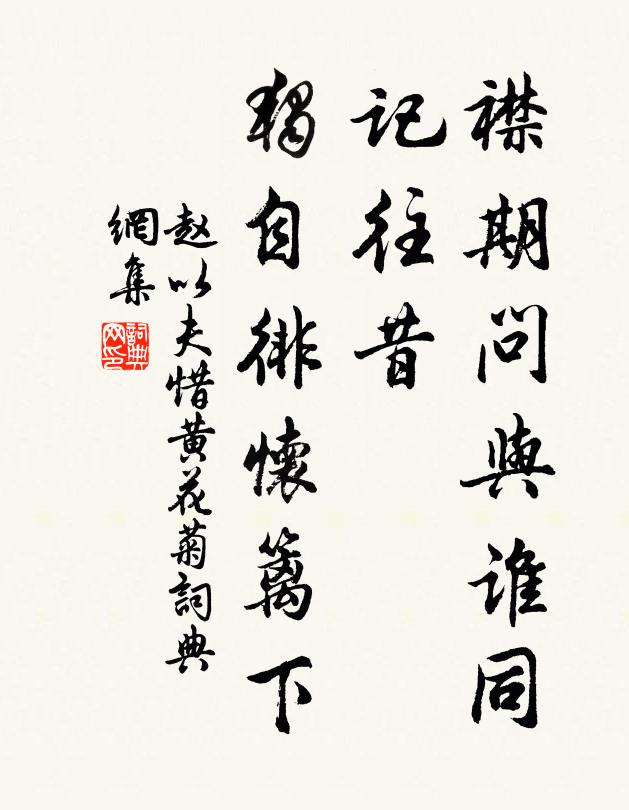 襟期問與誰同
記往昔
獨自徘懷籬下
赵以夫惜黄花菊詞典
網集
詞典
网印